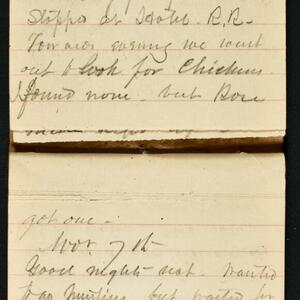 Stopped at Hotel. R.R.
Towards evening we went
out to look for Chickens
found none. but Bose
got one.
Nov 7th
Good nights rest. Wanted
to go hunting but waited for